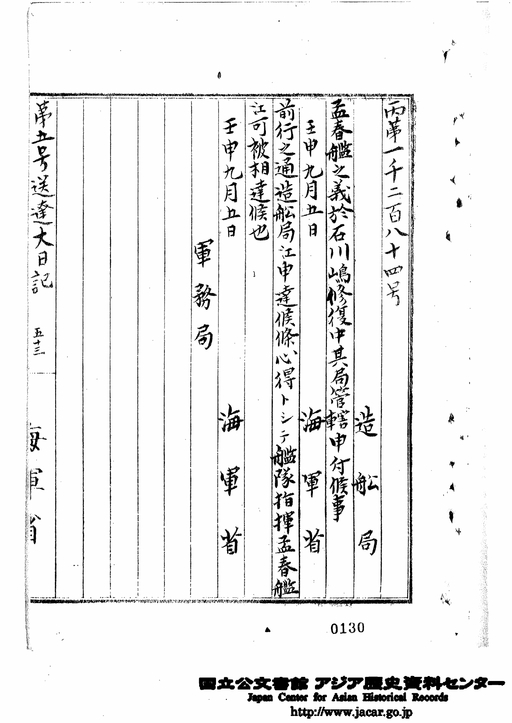 丙第一千二百八十四号
造舩局
孟春艦之義於石川嶋修復中其局管轄申付候事
壬申九月五日
海軍省
前行之通造舩局江申達候條心得トシテ艦隊指揮孟春艦
江可被相達候也
壬申九月五日
海軍省
軍務局
第五号送達大日記 五十三
海軍省
0130
国立公文書館 アジア歴史資料センター
Japan Center for Asian Historical Records
http://www.jacar.go.jp